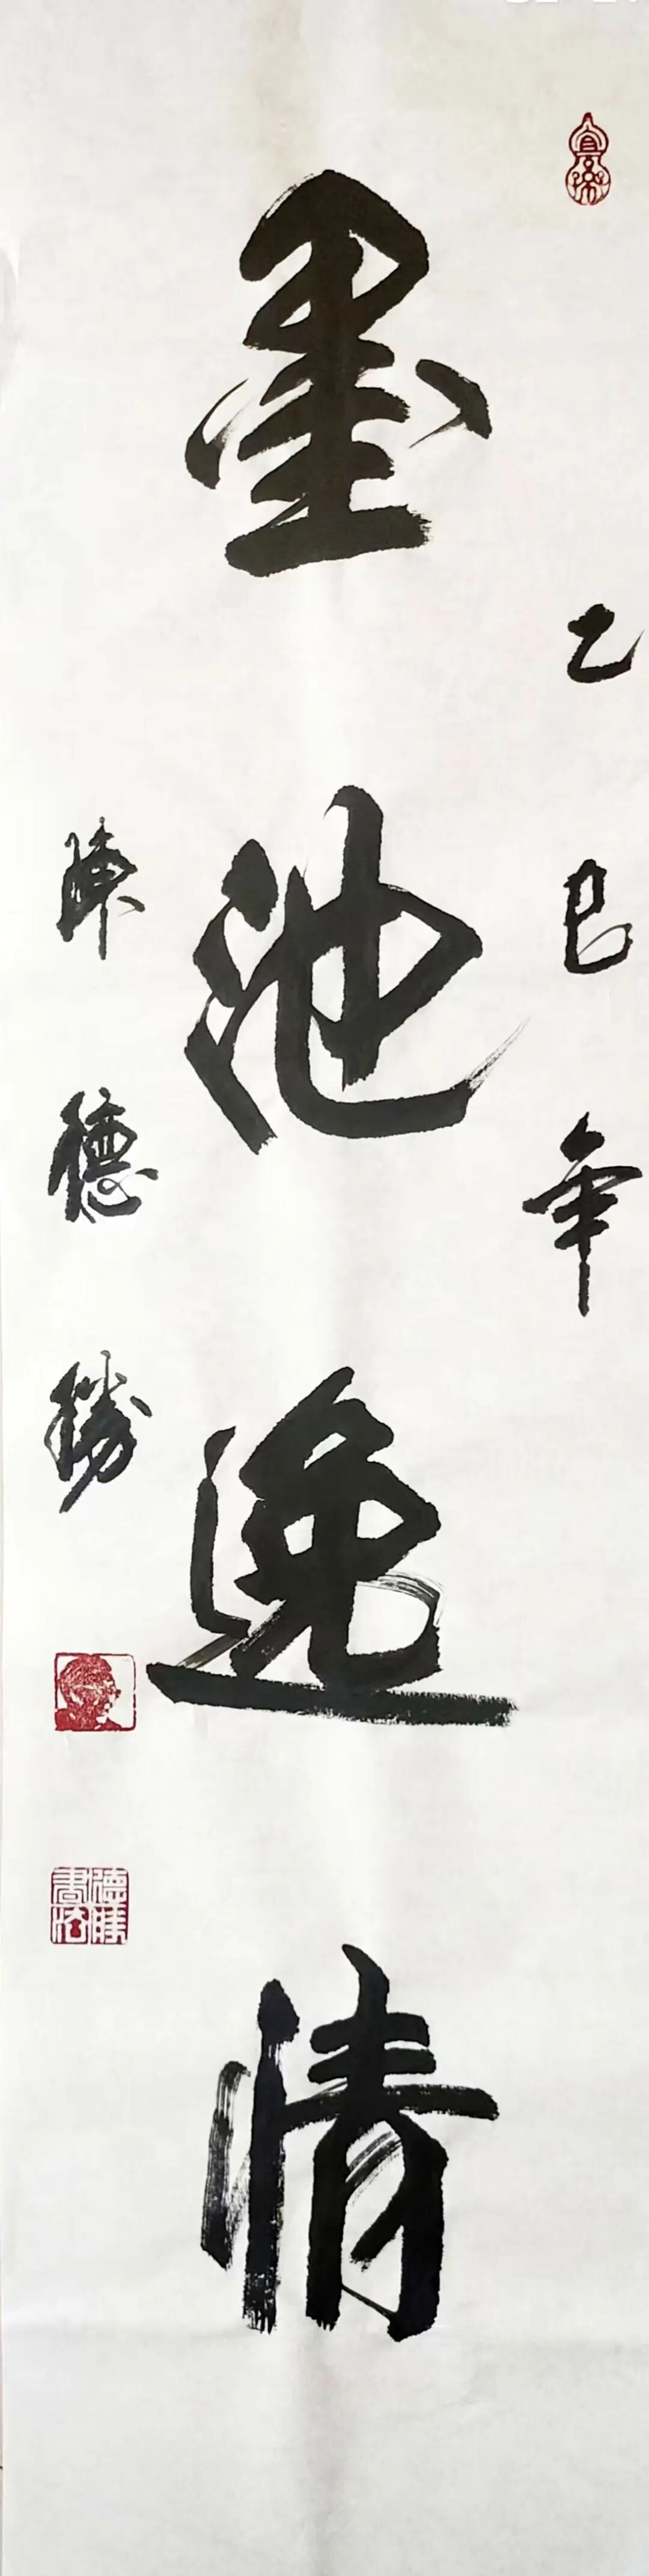 乙巳年
墨池逸情
陳德勝
德勝書法